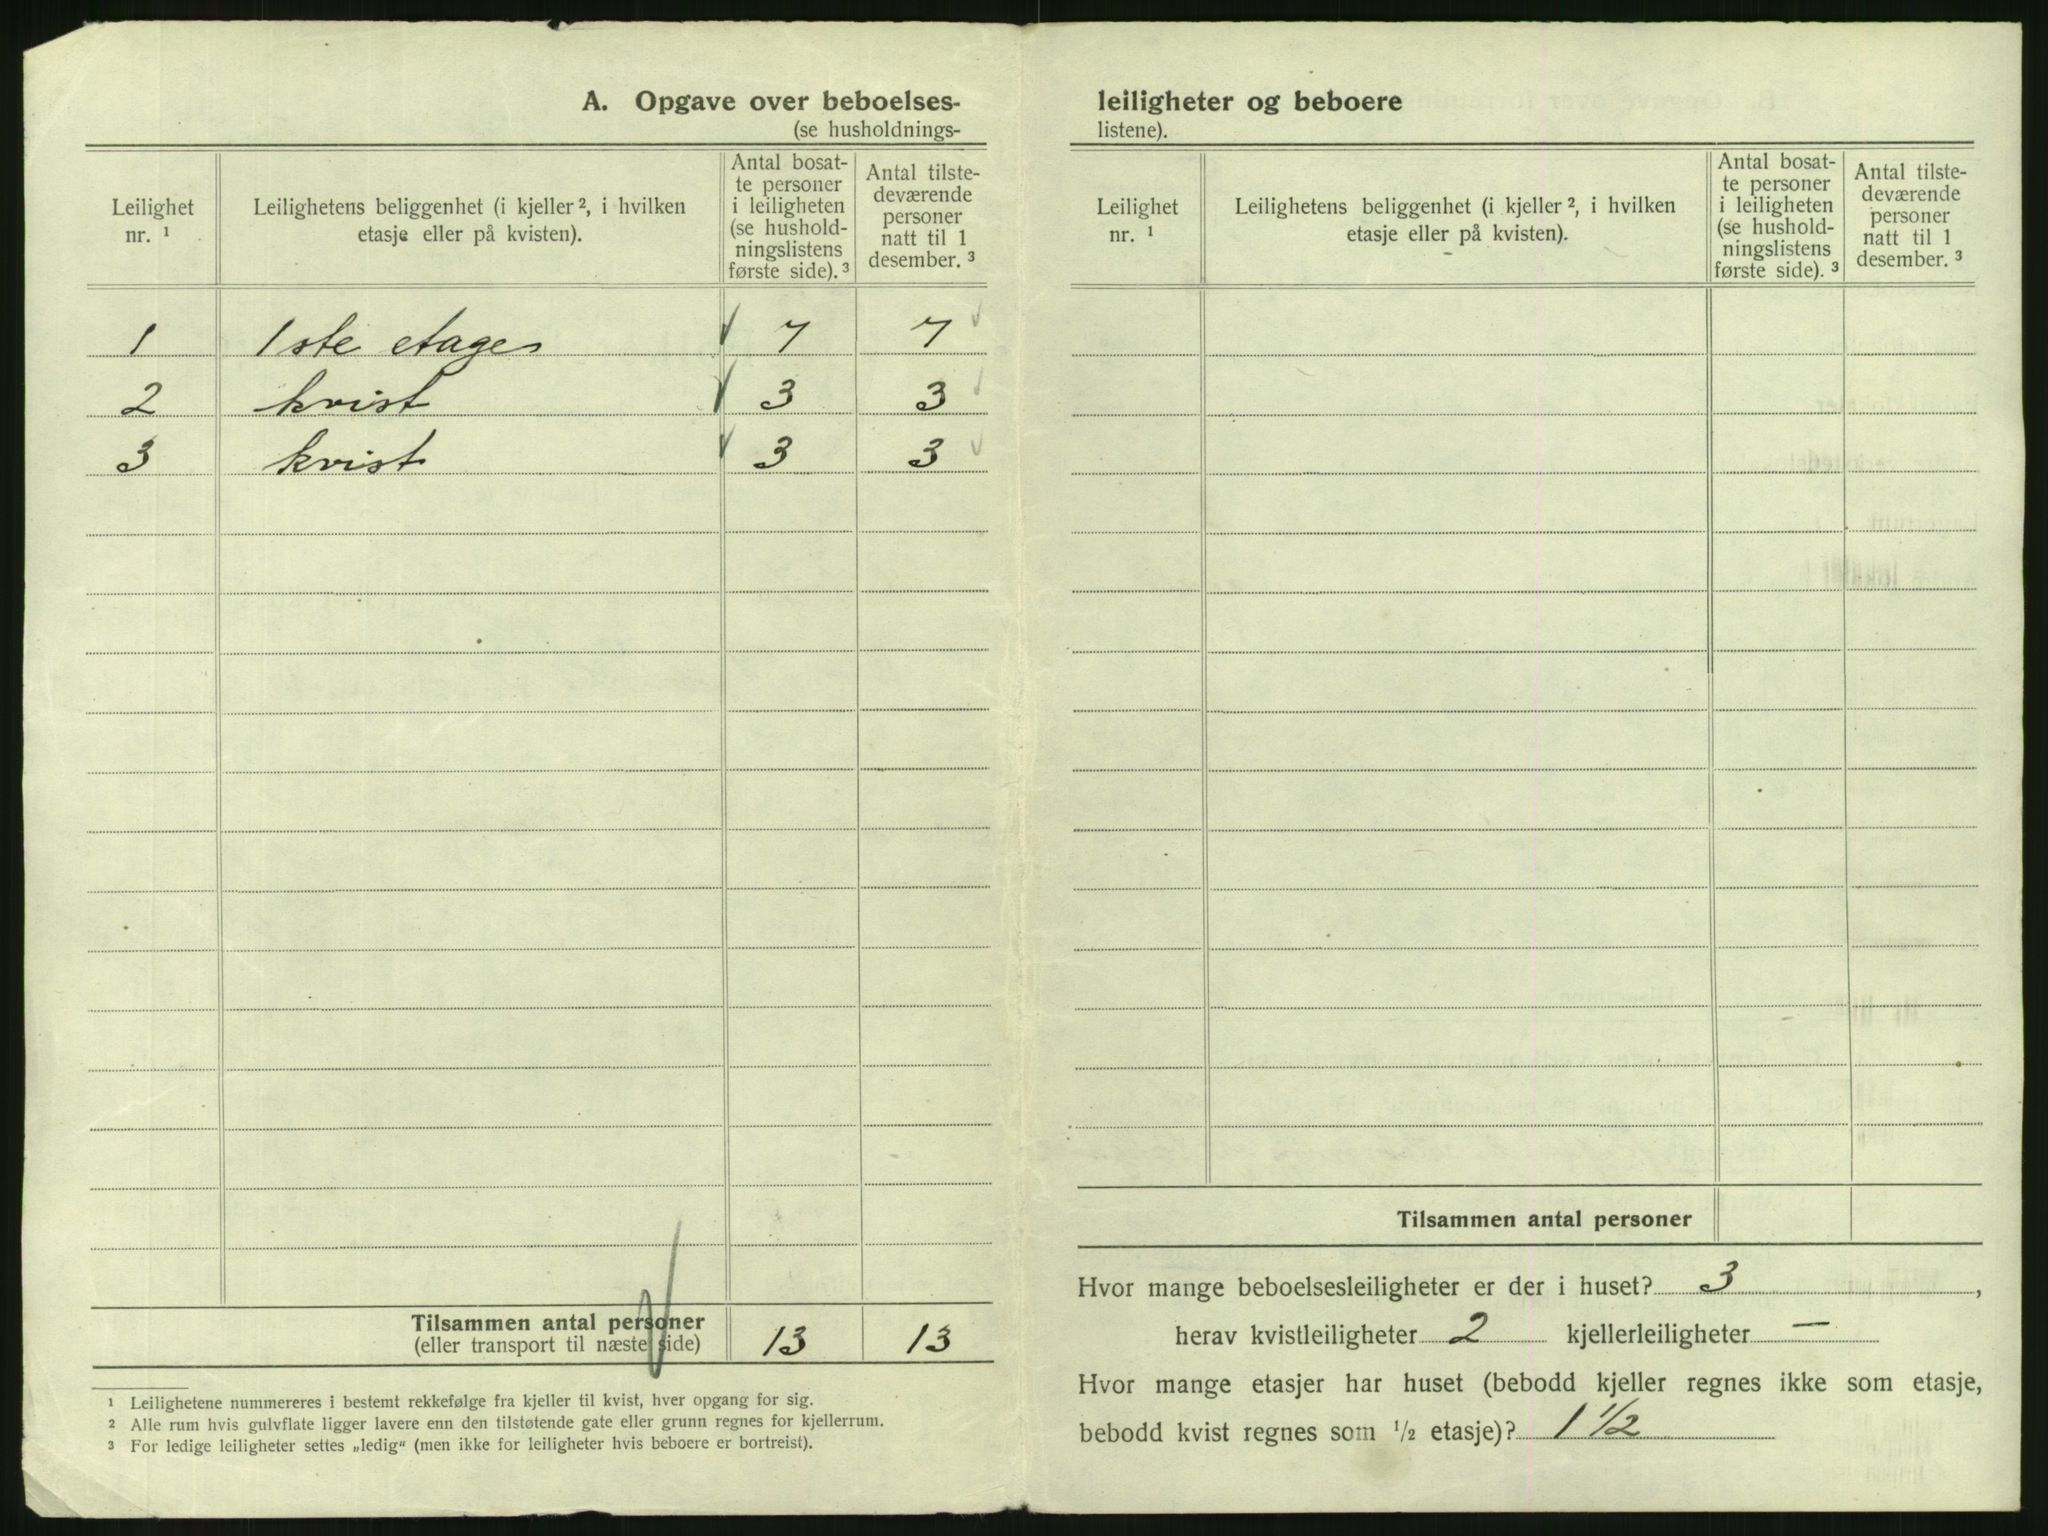 A. Opgave over beboelses-
(se husholdnings-
Leilighet nr. ¹ | Leilighetens beliggenhet (i kjeller ², i hvilken etasje eller på kvisten). | Antal bosat-te personer i leiligheten (se hushold-ningslistens første side). ³ | Antal tilste-deværende personer natt til 1 desember. ³
1 1ste etage 7 7
2 kvist 3 3
3 kvist 3 3
Tilsammen antal personer 13 13
(eller transport til næste side)
¹ Leilighetene nummereres i bestemt rekkefølge fra kjeller til kvist, hver opgang for sig.
² Alle rum hvis gulvflate ligger lavere enn den tilstøtende gate eller grunn regnes for kjellerrum.
³ For ledige leiligheter settes „ledig“ (men ikke for leiligheter hvis beboere er bortreist).
leiligheter og beboere
listene).
Leilighet nr. ¹ | Leilighetens beliggenhet (i kjeller ², i hvilken etasje eller på kvisten). | Antal bosat-te personer i leiligheten (se hushold-ningslistens første side). ³ | Antal tilste-deværende personer natt til 1 desember. ³
Tilsammen antal personer
Hvor mange beboelsesleiligheter er der i huset? 3 ,
herav kvistleiligheter 2 kjellerleiligheter —
Hvor mange etasjer har huset (bebodd kjeller regnes ikke som etasje,
bebodd kvist regnes som ½ etasje)? 1 ½